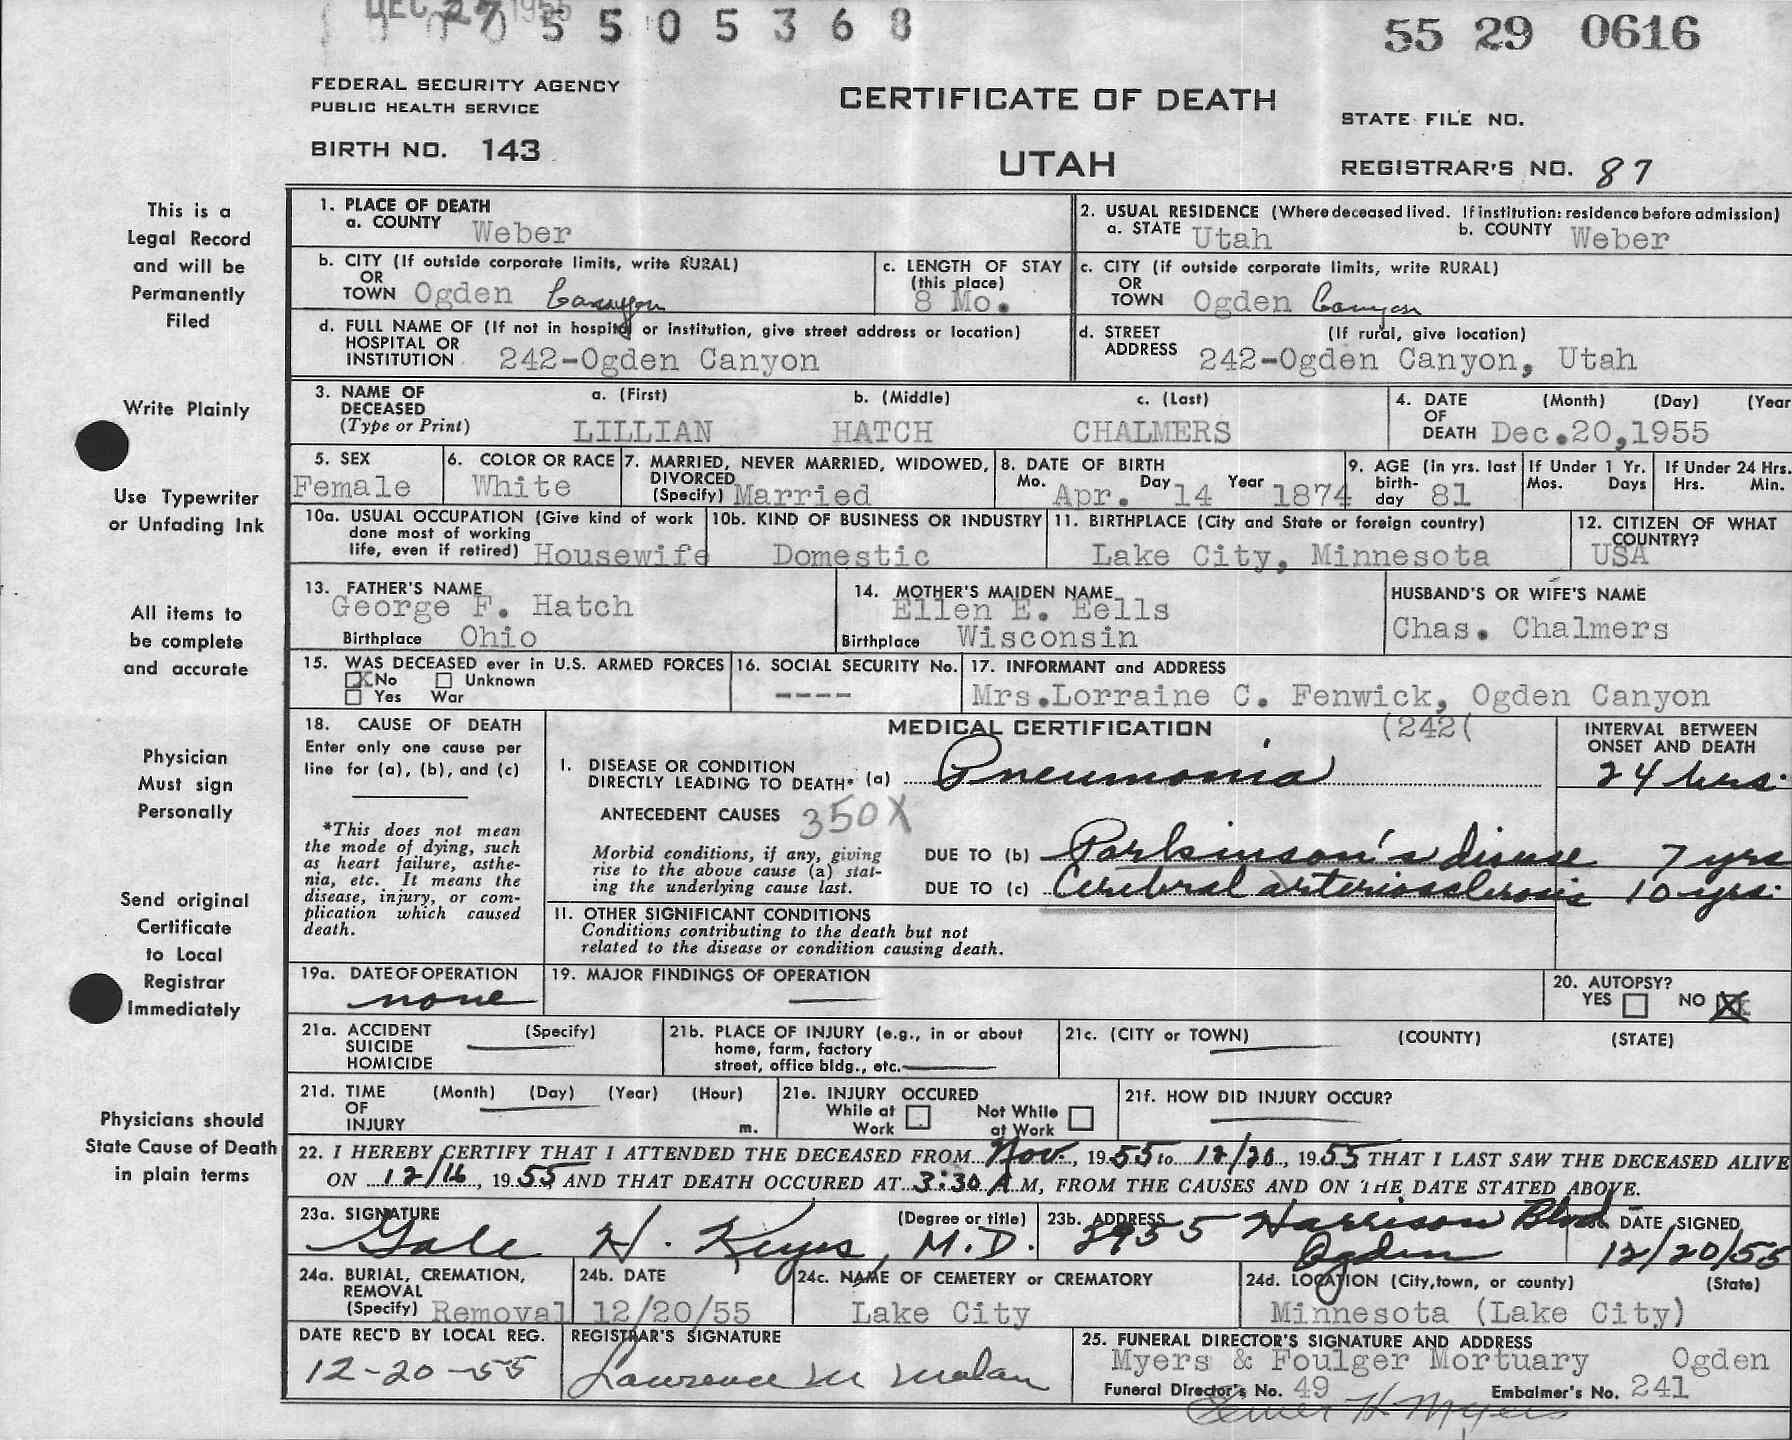 DEC 27 1955
5 5 0 5 3 6 8
55 29 0616
FEDERAL SECURITY AGENCY
PUBLIC HEALTH SERVICE
BIRTH NO. 143
CERTIFICATE OF DEATH
UTAH
STATE FILE NO.
REGISTRAR'S NO. 87
This is a
Legal Record
and will be
Permanently
Filed
Write Plainly
Use Typewriter
or Unfading Ink
All items to
be complete
and accurate
Physician
Must sign
Personally
Send original
Certificate
to Local
Registrar
Immediately
Physicians should
State Cause of Death
in plain terms
1. PLACE OF DEATH
a. COUNTY Weber
2. USUAL RESIDENCE (Where deceased lived. If institution: residence before admission)
a. STATE Utah b. COUNTY Weber
b. CITY (If outside corporate limits, write RURAL)
OR
TOWN Ogden Canyon
c. LENGTH OF STAY
(this place)
8 Mo.
c. CITY (if outside corporate limits, write RURAL)
OR
TOWN Ogden Canyon
d. FULL NAME OF (If not in hospital or institution, give street address or location)
HOSPITAL OR
INSTITUTION 242-Ogden Canyon
d. STREET (If rural, give location)
ADDRESS 242-Ogden Canyon, Utah
3. NAME OF
DECEASED
(Type or Print)
a. (First) b. (Middle) c. (Last)
LILLIAN HATCH CHALMERS
4. DATE (Month) (Day) (Year
OF
DEATH Dec.20,1955
5. SEX
Female
6. COLOR OR RACE
White
7. MARRIED, NEVER MARRIED, WIDOWED,
DIVORCED
(Specify) Married
8. DATE OF BIRTH
Mo. Apr. Day 14 Year 1874
9. AGE (in yrs. last
birth-
day 81
If Under 1 Yr.
Mos. Days
If Under 24 Hrs.
Hrs. Min.
10a. USUAL OCCUPATION (Give kind of work
done most of working
life, even if retired) Housewife
10b. KIND OF BUSINESS OR INDUSTRY
Domestic
11. BIRTHPLACE (City and State or foreign country)
Lake City, Minnesota
12. CITIZEN OF WHAT
COUNTRY?
USA
13. FATHER'S NAME
George F. Hatch
Birthplace Ohio
14. MOTHER'S MAIDEN NAME
Ellen E. Eells
Birthplace Wisconsin
HUSBAND'S OR WIFE'S NAME
Chas. Chalmers
15. WAS DECEASED ever in U.S. ARMED FORCES
X No Unknown
Yes War
16. SOCIAL SECURITY No.
----
17. INFORMANT and ADDRESS
Mrs.Lorraine C. Fenwick, Ogden Canyon
(242(
18. CAUSE OF DEATH
Enter only one cause per
line for (a), (b), and (c)
*This does not mean
the mode of dying, such
as heart failure, asthe-
nia, etc. It means the
disease, injury, or com-
plication which caused
death.
MEDICAL CERTIFICATION
INTERVAL BETWEEN
ONSET AND DEATH
I. DISEASE OR CONDITION
DIRECTLY LEADING TO DEATH* (a) Pneumonia 24 hrs.
ANTECEDENT CAUSES 350X
Morbid conditions, if any, giving
rise to the above cause (a) stat-
ing the underlying cause last.
DUE TO (b) Parkinson's disease 7 yrs
DUE TO (c) Cerebral arteriosclerosis 10 yrs.
II. OTHER SIGNIFICANT CONDITIONS
Conditions contributing to the death but not
related to the disease or condition causing death.
19a. DATE OF OPERATION
none
19. MAJOR FINDINGS OF OPERATION
20. AUTOPSY?
YES NO X
21a. ACCIDENT (Specify)
SUICIDE
HOMICIDE
21b. PLACE OF INJURY (e.g., in or about
home, farm, factory
street, office bldg., etc.
21c. (CITY or TOWN) (COUNTY) (STATE)
21d. TIME (Month) (Day) (Year) (Hour)
OF
INJURY m.
21e. INJURY OCCURED
While at Work Not While at Work
21f. HOW DID INJURY OCCUR?
22. I HEREBY CERTIFY THAT I ATTENDED THE DECEASED FROM Nov., 1955 to 12/20, 1955 THAT I LAST SAW THE DECEASED ALIVE
ON 12/16, 1955 AND THAT DEATH OCCURED AT 3:30 A.M, FROM THE CAUSES AND ON THE DATE STATED ABOVE.
23a. SIGNATURE (Degree or title)
Gale H. Keyes, M.D.
23b. ADDRESS
2955 Harrison Blvd.
Ogden
DATE SIGNED
12/20/55
24a. BURIAL, CREMATION,
REMOVAL
(Specify) Removal
24b. DATE
12/20/55
24c. NAME OF CEMETERY or CREMATORY
Lake City
24d. LOCATION (City,town, or county) (State)
Minnesota (Lake City)
DATE REC'D BY LOCAL REG.
12-20-55
REGISTRAR'S SIGNATURE
Lawrence M Malan
25. FUNERAL DIRECTOR'S SIGNATURE AND ADDRESS
Myers & Foulger Mortuary Ogden
Funeral Director's No. 49 Embalmer's No. 241
H Myers